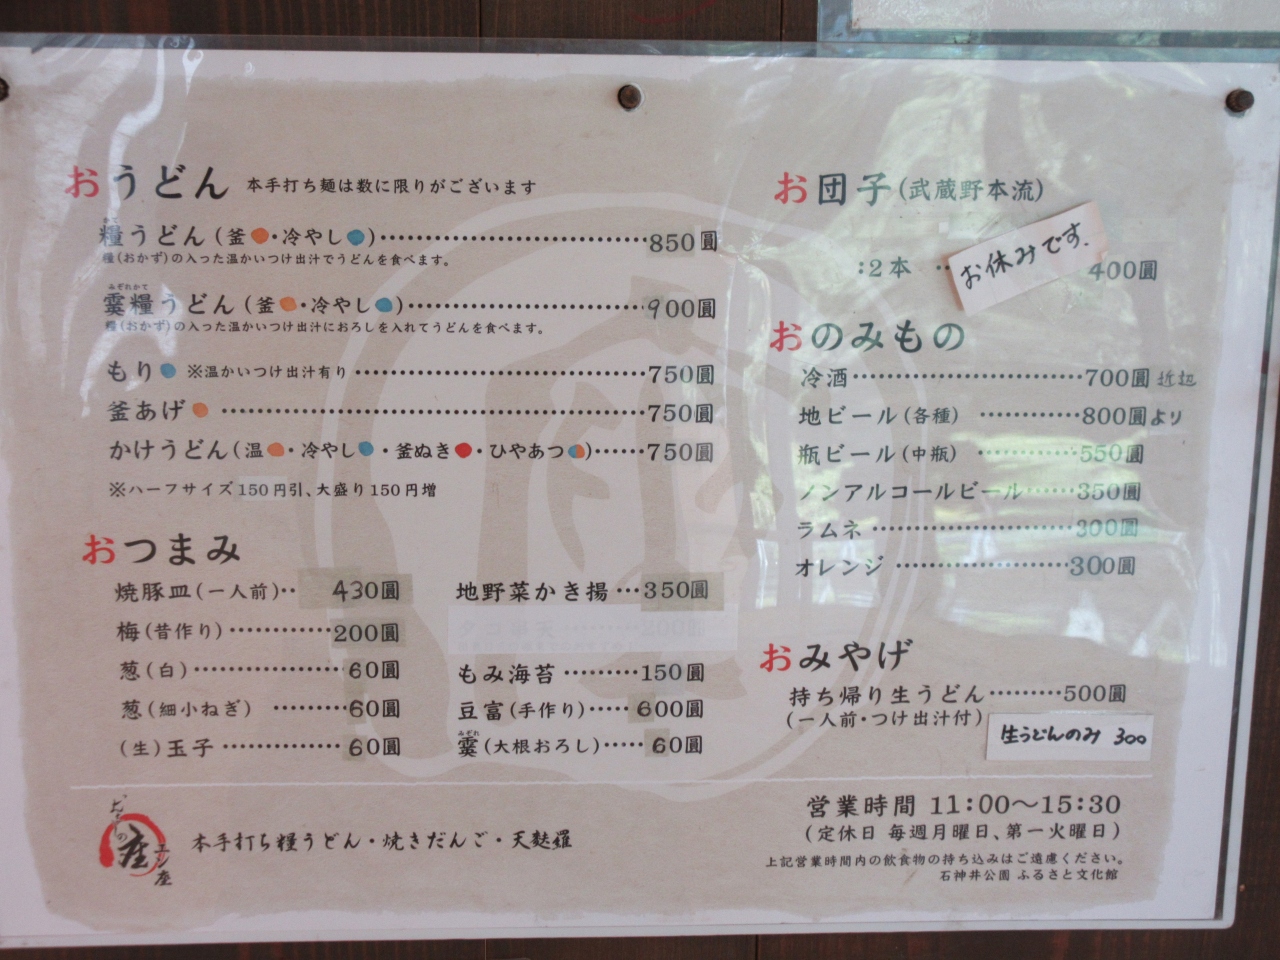 おうどん 本手打ち麺は数に限りがございます
かて
糧うどん(釜●・冷やし●)……850圓
糧(おかず)の入った温かいつけ出汁でうどんを食べます。
みぞれかて
霙糧うどん(釜●・冷やし●)……900圓
糧(おかず)の入った温かいつけ出汁におろしを入れてうどんを食べます。
もり● ※温かいつけ出汁有り……750圓
釜あげ●……750圓
かけうどん(温●・冷やし●・釜ぬき●・ひやあつ●)……750圓
※ハーフサイズ150円引、大盛り150円増
おつまみ
焼豚皿(一人前)‥ 430圓
梅(昔作り)……200圓
葱(白)……60圓
葱(細小ねぎ)……60圓
(生)玉子……60圓
地野菜かき揚…350圓
もみ海苔……150圓
豆富(手作り)……600圓
みぞれ
霙(大根おろし)……60圓
お団子(武蔵野本流)
:2本 ‥ 400圓
お休みです.
おのみもの
冷酒……700圓 近辺
地ビール(各種)……800圓より
瓶ビール(中瓶)……550圓
ノンアルコールビール……350圓
ラムネ……300圓
オレンジ……300圓
おみやげ
持ち帰り生うどん……500圓
(一人前・つけ出汁付)
生うどんのみ 300
エン座
本手打ち糧うどん・焼きだんご・天麩羅
営業時間 11:00〜15:30
(定休日 毎週月曜日、第一火曜日)
上記営業時間内の飲食物の持ち込みはご遠慮ください。
石神井公園 ふるさと文化館